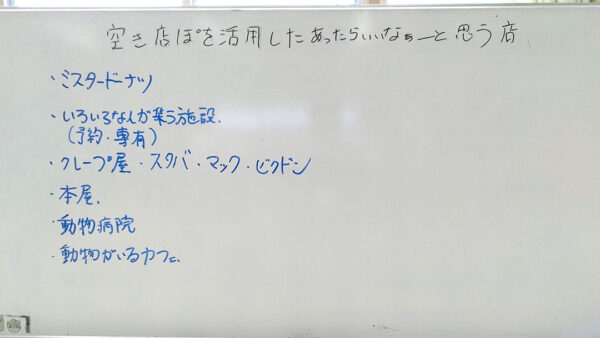 空き店ぽを活用したあったらいいなぁーと思う店
・ミスタードーナツ
・いろいろな人が集う施設.
(予約・専有)
・クレープ屋・スタバ・マック・ビクドン
・本屋.
・動物病院
・動物がいるカフェ.